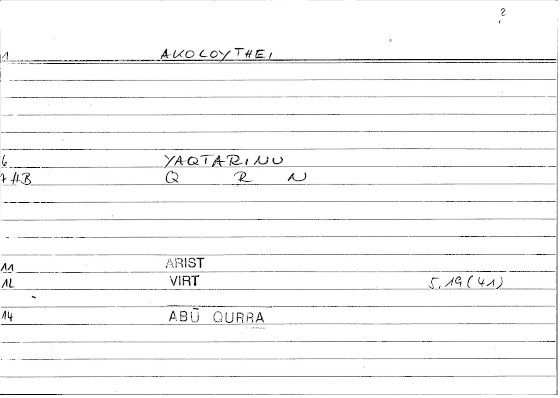 2
1 AKOLOYTHEI
6 YAQTARINU
7 HB Q R N
11 ARIST
12 VIRT 5,19(41)
14 ABŪ QURRA